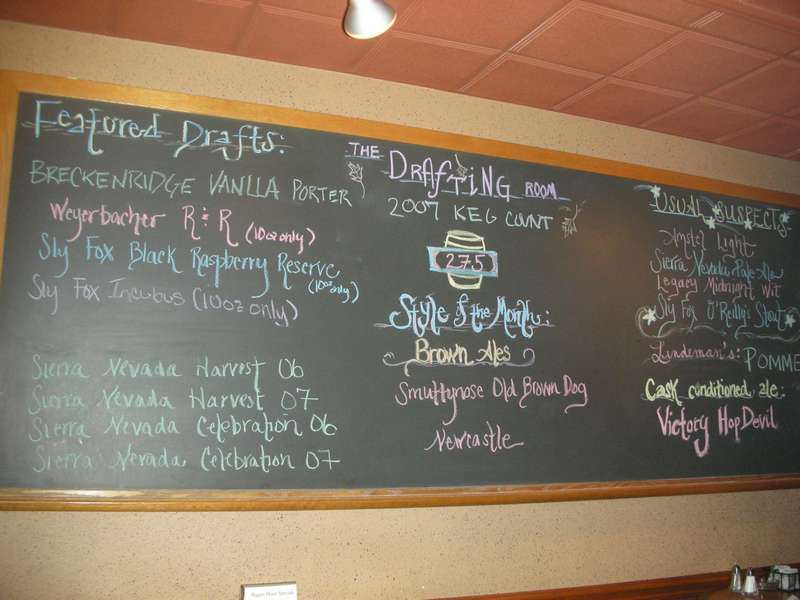 Featured Drafts:
BRECKENRIDGE VANILLA PORTER
Weyerbacher R & R (10oz only)
Sly Fox Black Raspberry Reserve
(10oz only)
Sly Fox Incubus (10oz only)
Sierra Nevada Harvest 06
Sierra Nevada Harvest 07
Sierra Nevada Celebration 06
Sierra Nevada Celebration 07
THE DRAFTING ROOM
2007 KEG COUNT
275
Style of the Month:
Brown Ales
Smuttynose Old Brown Dog
Newcastle
USUAL SUSPECTS
Amstel Light
Sierra Nevada Pale Ale
Legacy Midnight Wit
Sly Fox O'Reilly's Stout
Lindeman's: POMME
Cask conditioned ale:
Victory HopDevil
Happy Hour Specials